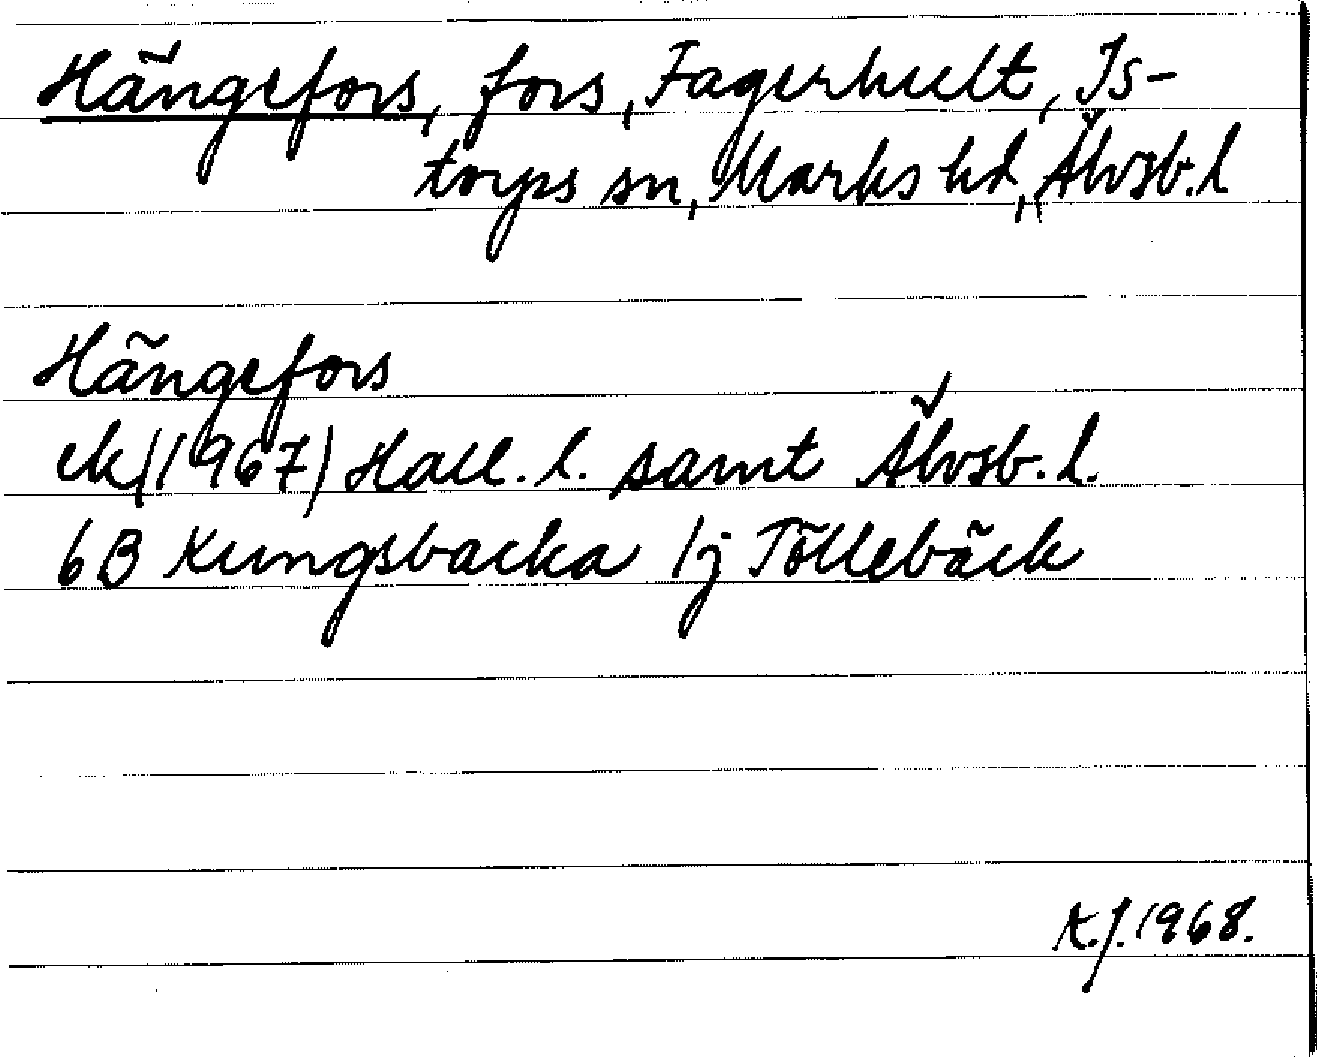 Hängefors, fors, Fagerhult, Is-
torps sn, Marks hd, Älvsb. l
Hängefors
ek (1967) Hall. l. samt Älvsb. l.
6B Kungsbacka 1j Töllebäck
K.J. 1968.